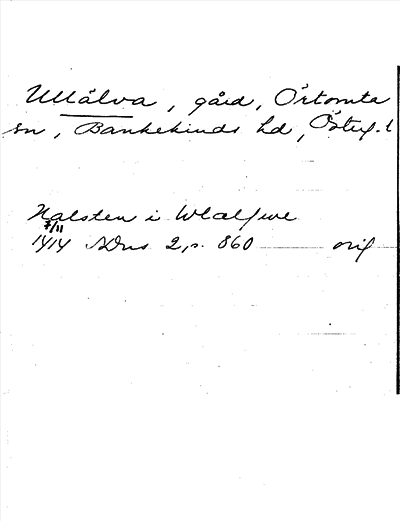 Ullälva, gård, Örtomta
sn, Bankekinds hd, Östergl
Halsten i Wlælfwe
7/11
1414 SDns 2, s. 860 orig